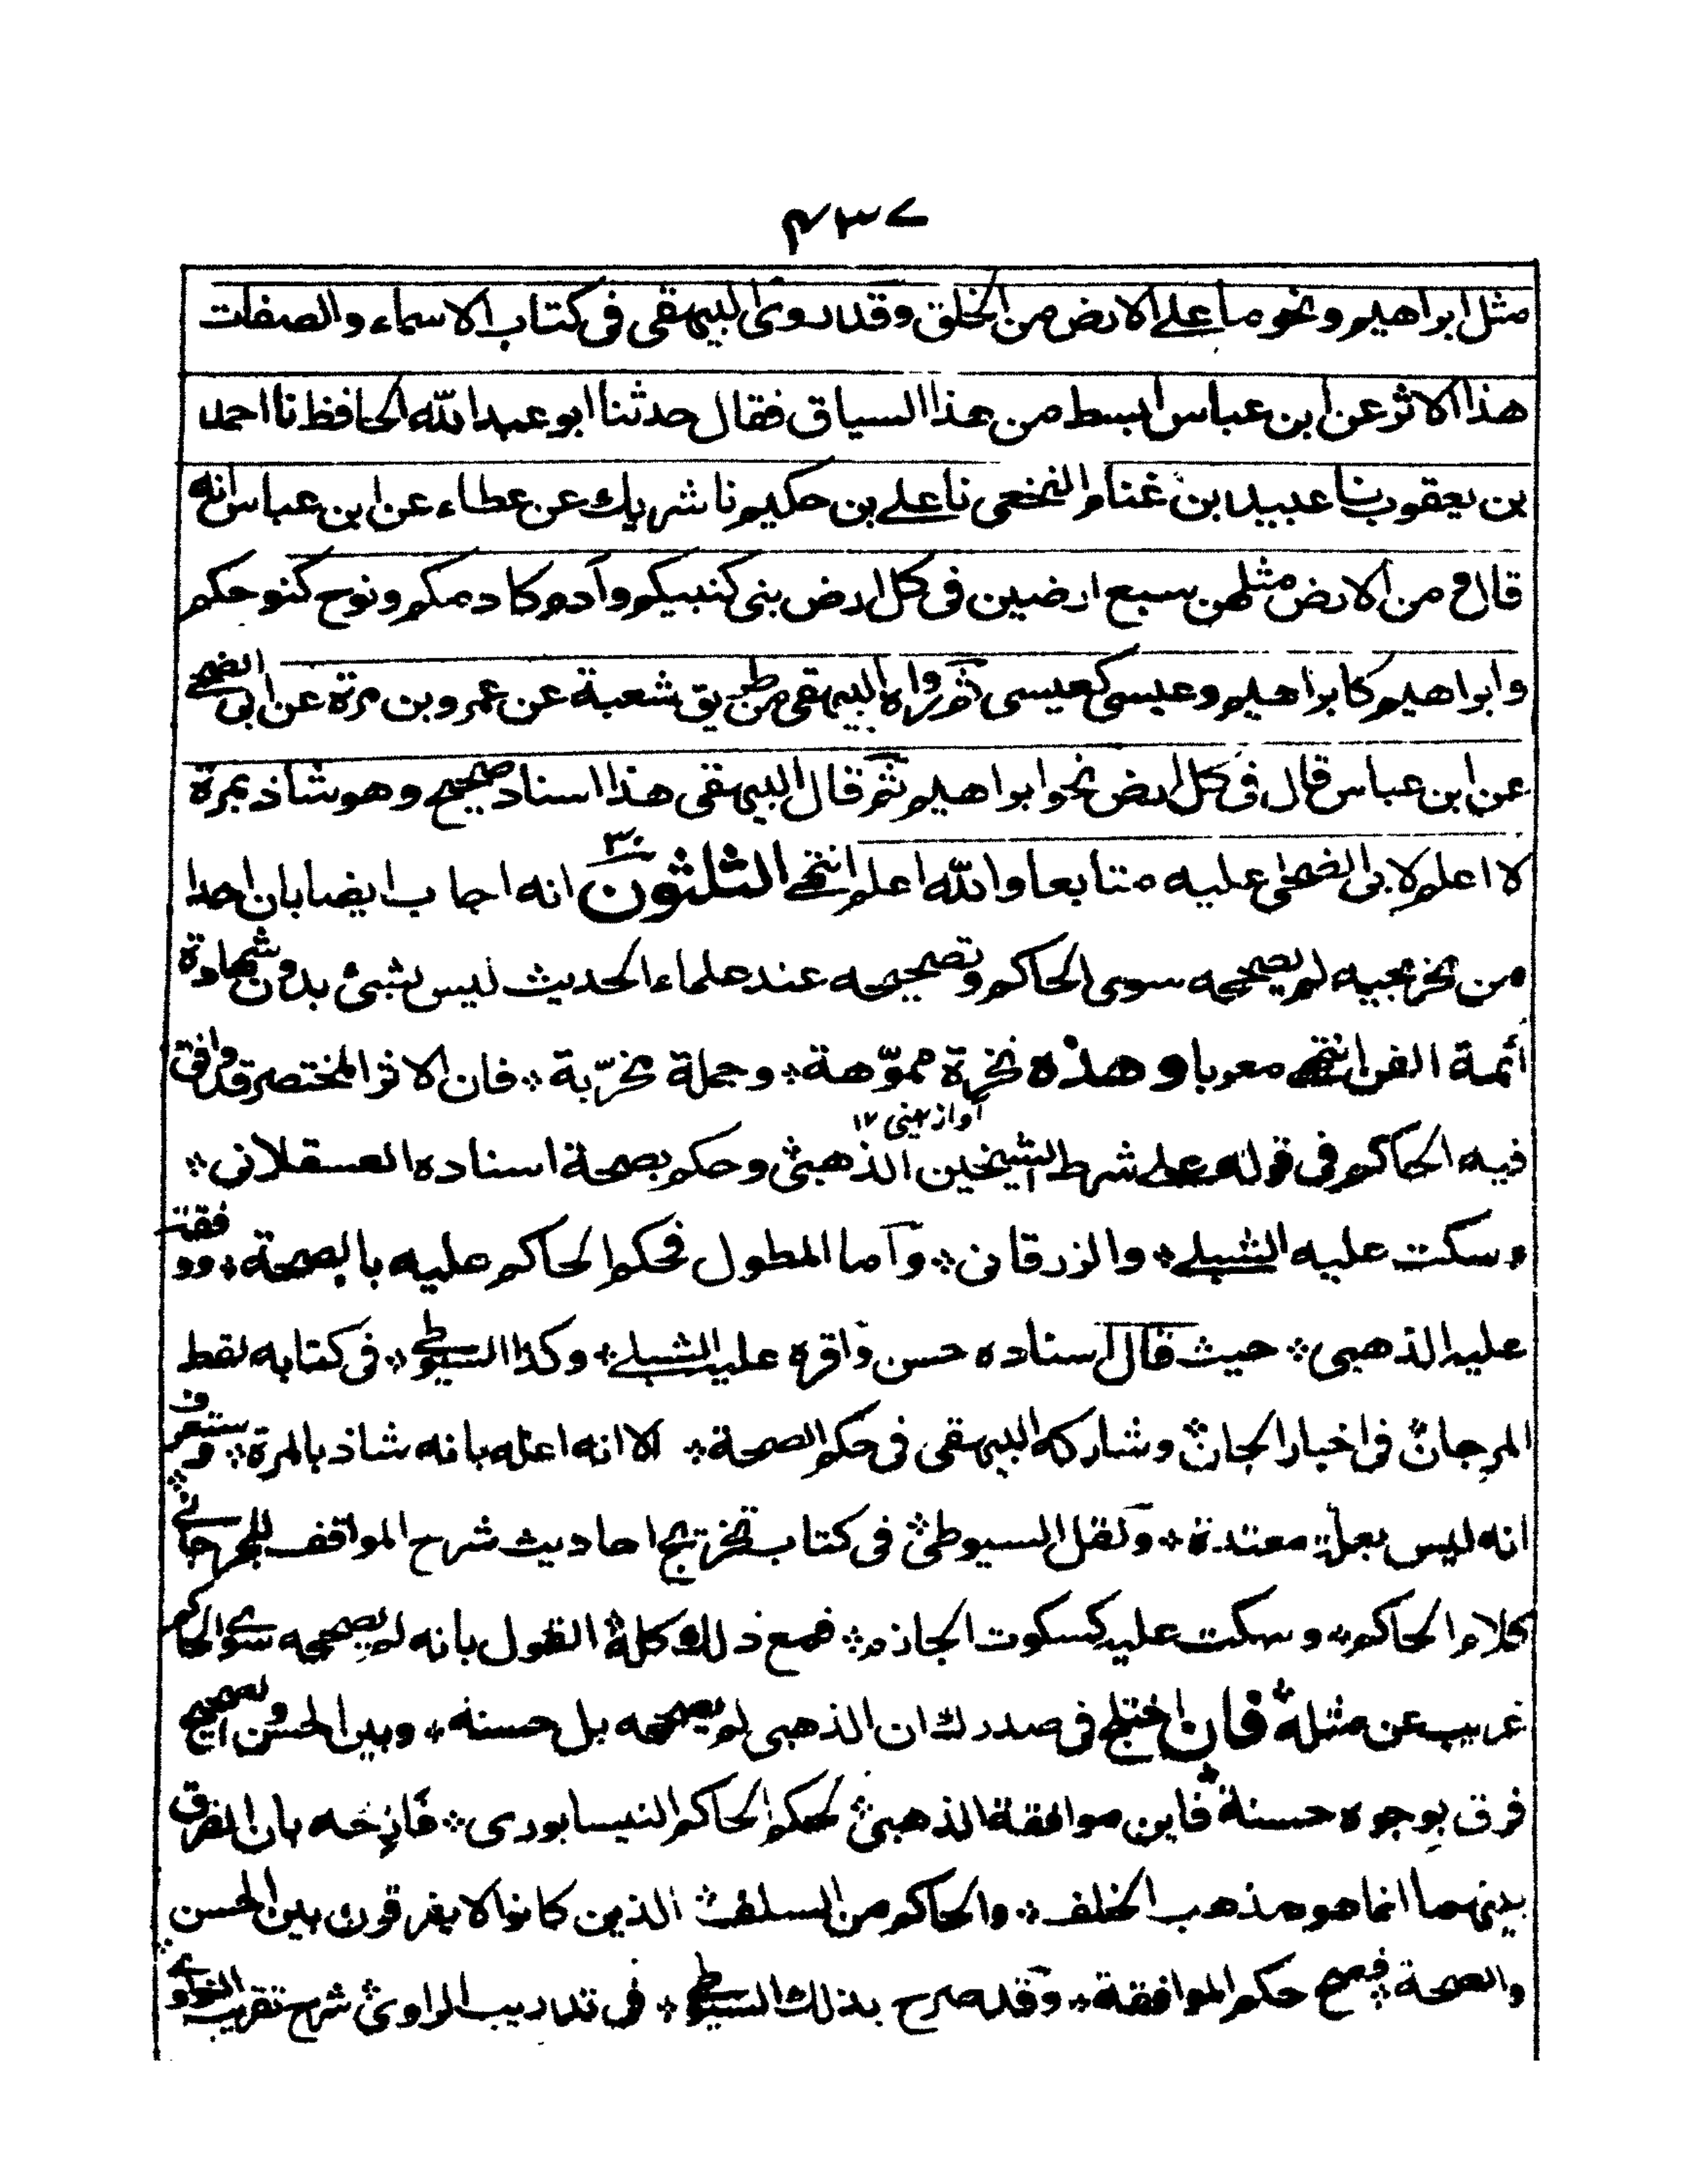 ٤٣٧
مثل ابراهيم ونحو ما على الارض من الخلق وقد روى البيهقى فى كتاب الاسماء والصفات
هذا الاثر عن ابن عباس ابسط من هذا السياق فقال حدثنا ابو عبد الله الحافظ نا احمد
بن يعقوب نا عبيد بن غنام النخعى نا على بن حكيم نا شريك عن عطاء عن ابن عباس انه
قال ومن الارض مثلهن سبع ارضين فى كل ارض بنى كنبيكم وآدم كادمكم ونوح كنوحكم
وابراهيم كابراهيم وعيسى كعيسى ثم رواه البيهقى من طريق شعبة عن عمرو بن مرة عن ابى الضحى
عن ابن عباس قال فى كل ارض نحو ابراهيم ثم قال البيهقى هذا اسناد صحيح وهو شاذ بمرة
لا اعلم لابى الضحى عليه متابعا والله اعلم انتهى الثلثون ٣٠ انه اجاب ايضا بان احدا
من مخرجيه لم يصححه سوى الحاكم وتصحيحه عند علماء الحديث ليس بشئ بدون شهادة
أئمة الفن انتهى معربا وهذه نخرة مموّهة ٭ وجملة مخرّبة ٭ فان الاثر المختصر قد وافق
آواز بینی ١٢
فيه الحاكم فى قوله على شرط الشيخين الذهبى وحكم بصحة اسناده العسقلانى ٭
وسكت عليه الشبلى ٭ والزرقانى ٭ وأما المطول فحكم الحاكم عليه بالصحة ٭ ووافقه
عليه الذهبى ٭ حيث قال اسناده حسن واقره عليه الشبلى ٭ وكذا السيوطى ٭ فى كتابه لقط
المرجان فى اخبار الجان وشاركه البيهقى فى حكم الصحة ٭ الا انه اعله بانه شاذ بالمرة ٭ وستعرف
انه ليس بعلة معتدة ٭ ونقل السيوطى فى كتاب تخريج احاديث شرح المواقف للجرجانى
كلام الحاكم ٭ وسكت عليه كسكوت الجازم ٭ فمع ذلك كله القول بانه لم يصححه سوى الحاكم
غريب عن مثله فان اختلج فى صدرك ان الذهبى لم يصححه بل حسنه ٭ وبين الحسن والصحيح
فرق بوجوه حسنة فاين موافقة الذهبى لحكم الحاكم النيسابورى ٭ فازحه بان الفرق
بينهما انما هو مذهب الخلف ٭ والحاكم من السلف الذين كانوا لا يفرقون بين الحسن
والصحة ٭ فصح حكم الموافقة ٭ وقد صرح بذلك السيوطى ٭ فى تدريب الراوى شرح تقريب النواوى